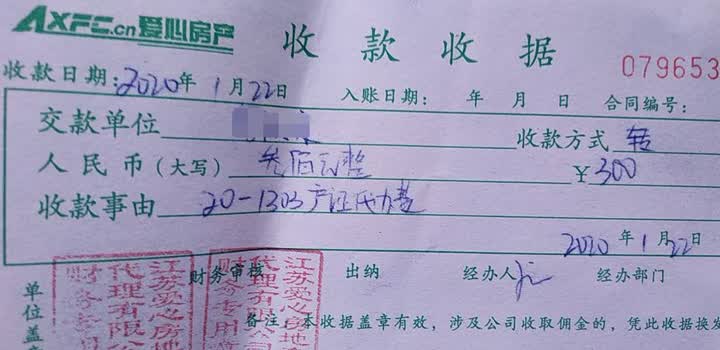 AXFC.cn 爱心房产 收款收据
079653
收款日期：2020年1月22日 入账日期： 年 月 日 合同编号：
交款单位 收款方式 转
人民币（大写） 叁佰元整 ¥300
收款事由 20-1303产证代办费
2020年1月22日
单位盖 财务审核 出纳 经办人 经办部门
江苏爱心房地
代理有限公
财务专用
江苏爱心房地
代理有限公司
财务专用章
备注：本收据盖章有效，涉及公司收取佣金的，凭此收据换发